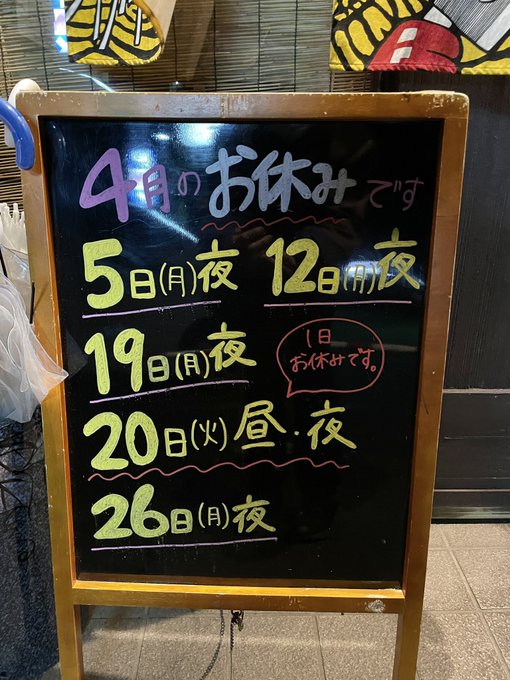 4月のお休みです
5日(月)夜 12日(月)夜
19日(月)夜
1日
お休みです。
20日(火)昼・夜
26日(月)夜